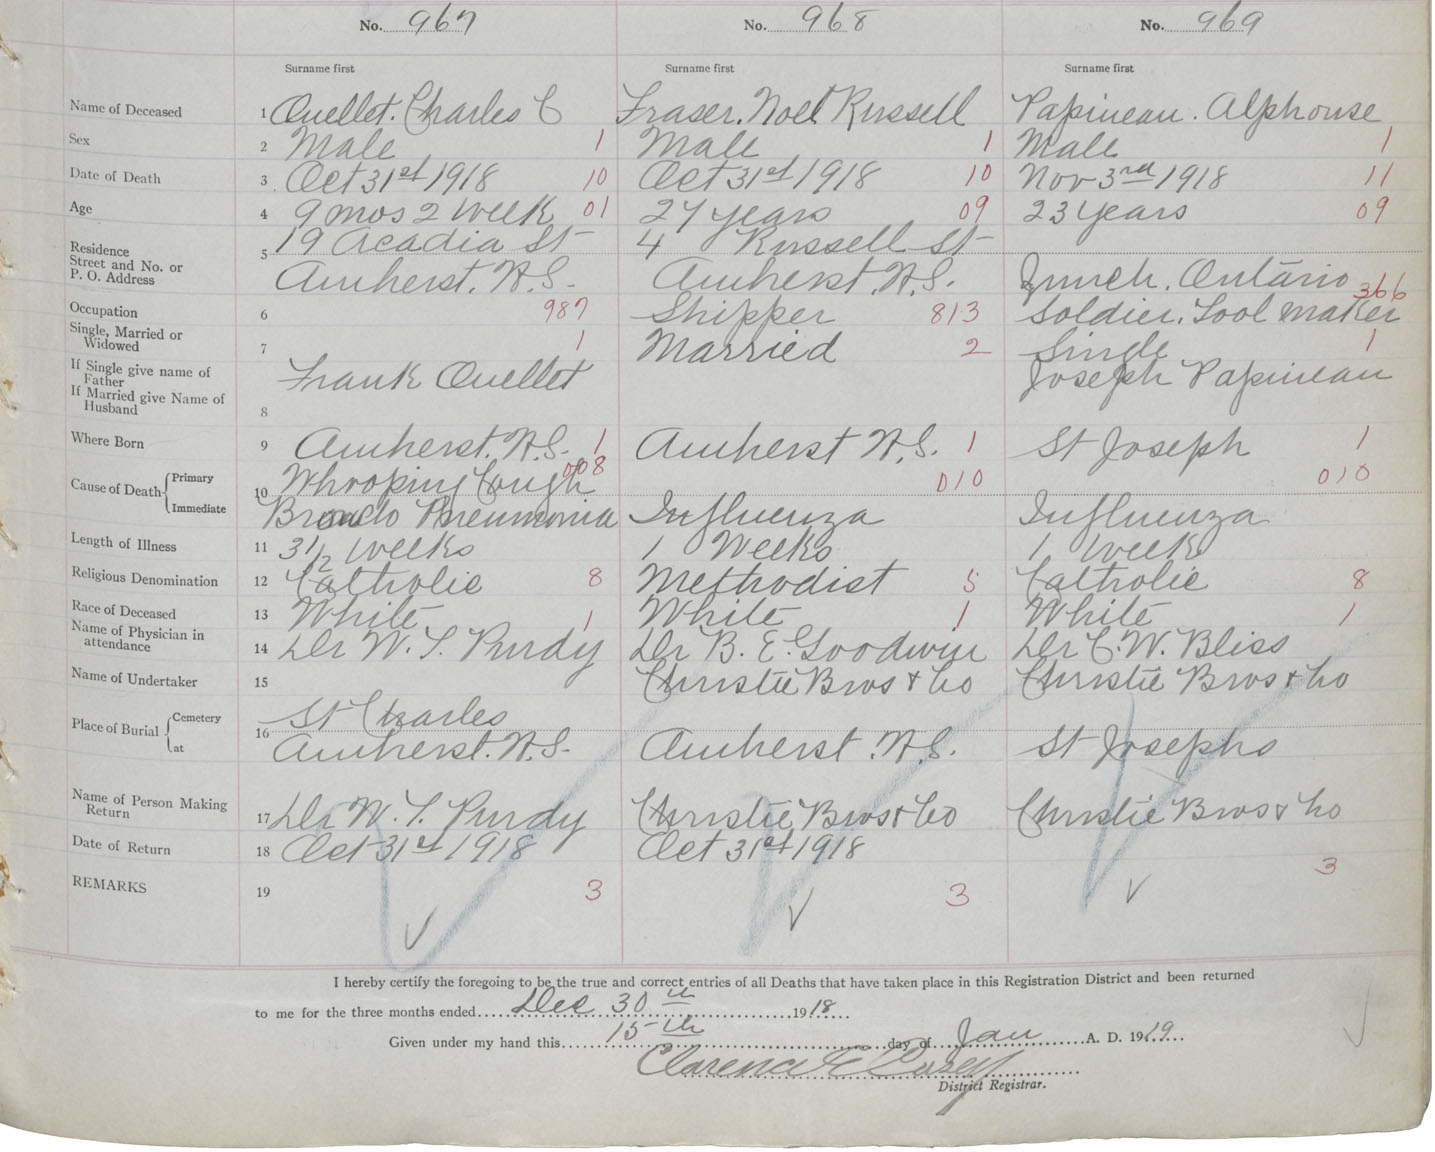 No. 967 No. 968 No. 969
Surname first Surname first Surname first
Name of Deceased 1 Ouellet. Charles C Fraser. Noel Russell Papineau. Alphouse
Sex 2 Male 1 Male 1 Male 1
Date of Death 3 Oct 31st 1918 10 Oct 31st 1918 10 Nov 3rd 1918 11
Age 4 9 mos 2 Week 01 27 years 09 23 years 09
Residence 5 19 Acadia St 4 Russell St
Street and No. or
P. O. Address Amherst. N.S. Amherst. N.S. Ontario 366
Occupation 6 987 Shipper 813 Soldier. Tool maker
Single, Married or
Widowed 7 1 Married 2 Single 1
If Single give name of
Father Frank Ouellet Joseph Papineau
If Married give Name of
Husband 8
Where Born 9 Amherst. N.S. 1 Amherst N.S. 1 St Joseph 1
Cause of Death Primary 10 Whooping Cough 008 010 010
Immediate Broncho Pneumonia Influenza Influenza
Length of Illness 11 3 1/2 Weeks 1 Weeks 1 Week
Religious Denomination 12 Catholic 8 Methodist 5 Catholic 8
Race of Deceased 13 White 1 White 1 White 1
Name of Physician in
attendance 14 Dr W. T. Purdy Dr B. E. Goodwin Dr C. W. Bliss
Name of Undertaker 15 Christie Bros & Co Christie Bros & Co
Place of Burial Cemetery 16 St Charles
at Amherst. N.S. Amherst. N.S. St Josephs
Name of Person Making
Return 17 Dr W. T. Purdy Christie Bros & Co Christie Bros & Co
Date of Return 18 Oct 31st 1918 Oct 31st 1918
REMARKS 19 3 3 3
I hereby certify the foregoing to be the true and correct entries of all Deaths that have taken place in this Registration District and been returned
to me for the three months ended Dec 30th 1918
Given under my hand this 15th day of Jan A. D. 1919
Clarence
District Registrar.